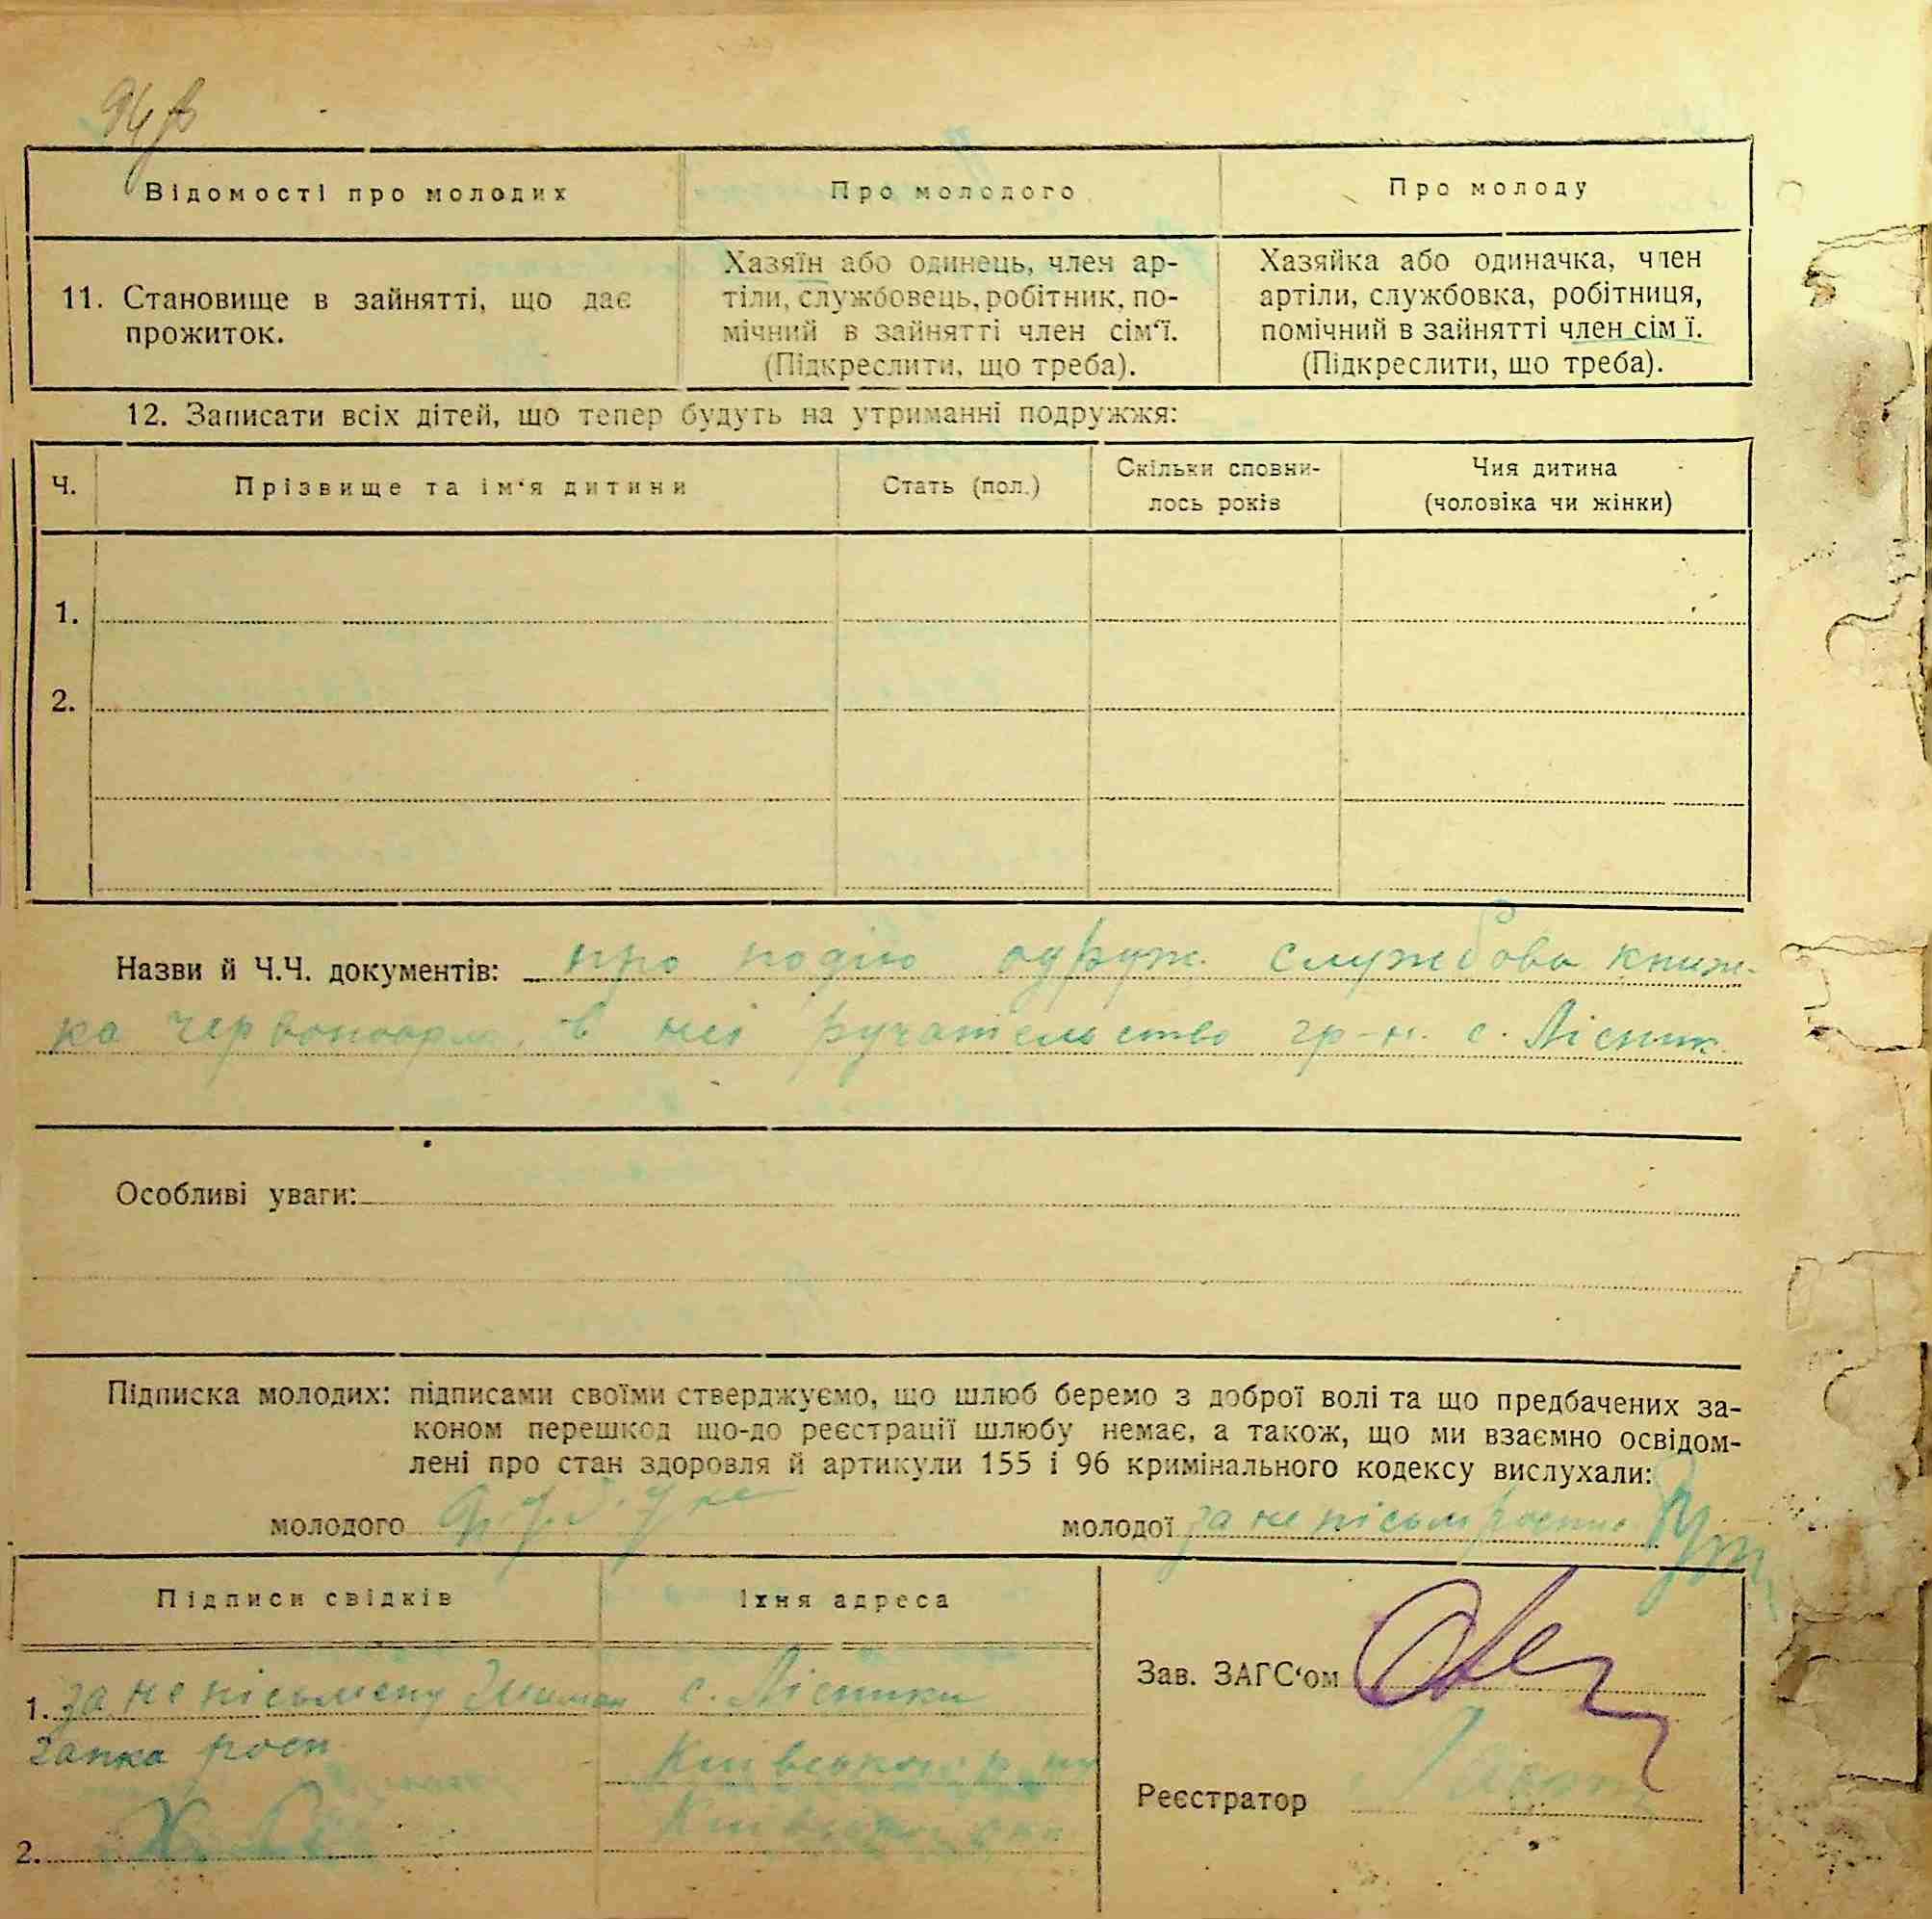 Відомості про молодих
Про молодого
Про молоду
11. Становище в зайнятті, що дає
прожиток.
Хазяїн або одинець, член ар-
тіли, службовець, робітник, по-
мічний в зайнятті член сім'ї.
(Підкреслити, що треба).
Хазяйка або одиначка, член
артіли, службовка, робітниця,
помічний в зайнятті член сім ї.
(Підкреслити, що треба).
12. Записати всіх дітей, що тепер будуть на утриманні подружжя:
Ч.
Прізвище та ім'я дитини
Стать (пол.)
Скільки сповни-
лось років
Чия дитина
(чоловіка чи жінки)
1.
2.
Назви й Ч.Ч. документів: про подію одруж. службова книж-
ка червоноарм. в неї ручательство гр-н. с. Лісник
Особливі уваги:
Підписка молодих: підписами своїми стверджуємо, що шлюб беремо з доброї волі та що предбачених за-
коном перешкод що-до реєстрації шлюбу немає, а також, що ми взаємно освідом-
лені про стан здоровля й артикули 155 і 96 кримінального кодексу вислухали:
молодого
молодої за неписьм
Підписи свідків
Їхня адреса
1. за неписьмену
с. Лісники
Київського р-ну
2.
Зав. ЗАГС'ом
Реєстратор